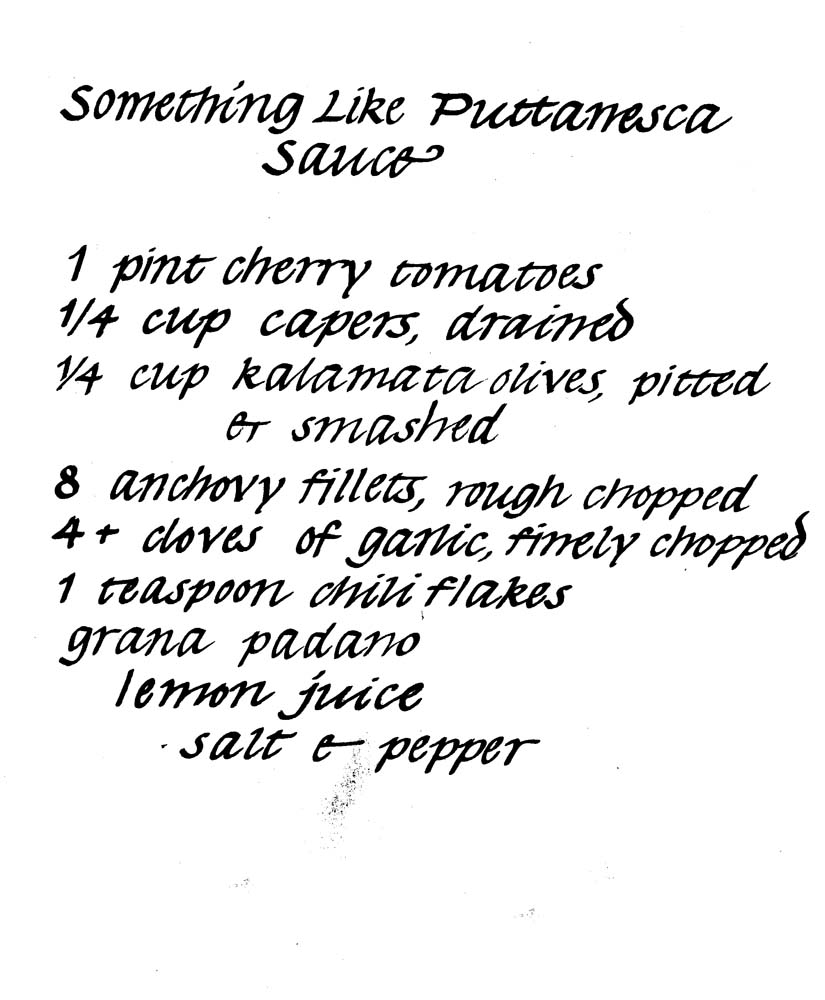 Something Like Puttanesca
Sauce
1 pint cherry tomatoes
1/4 cup capers, drained
1/4 cup kalamata olives, pitted
& smashed
8 anchovy fillets, rough chopped
4+ cloves of garlic, finely chopped
1 teaspoon chili flakes
grana padano
lemon juice
salt & pepper